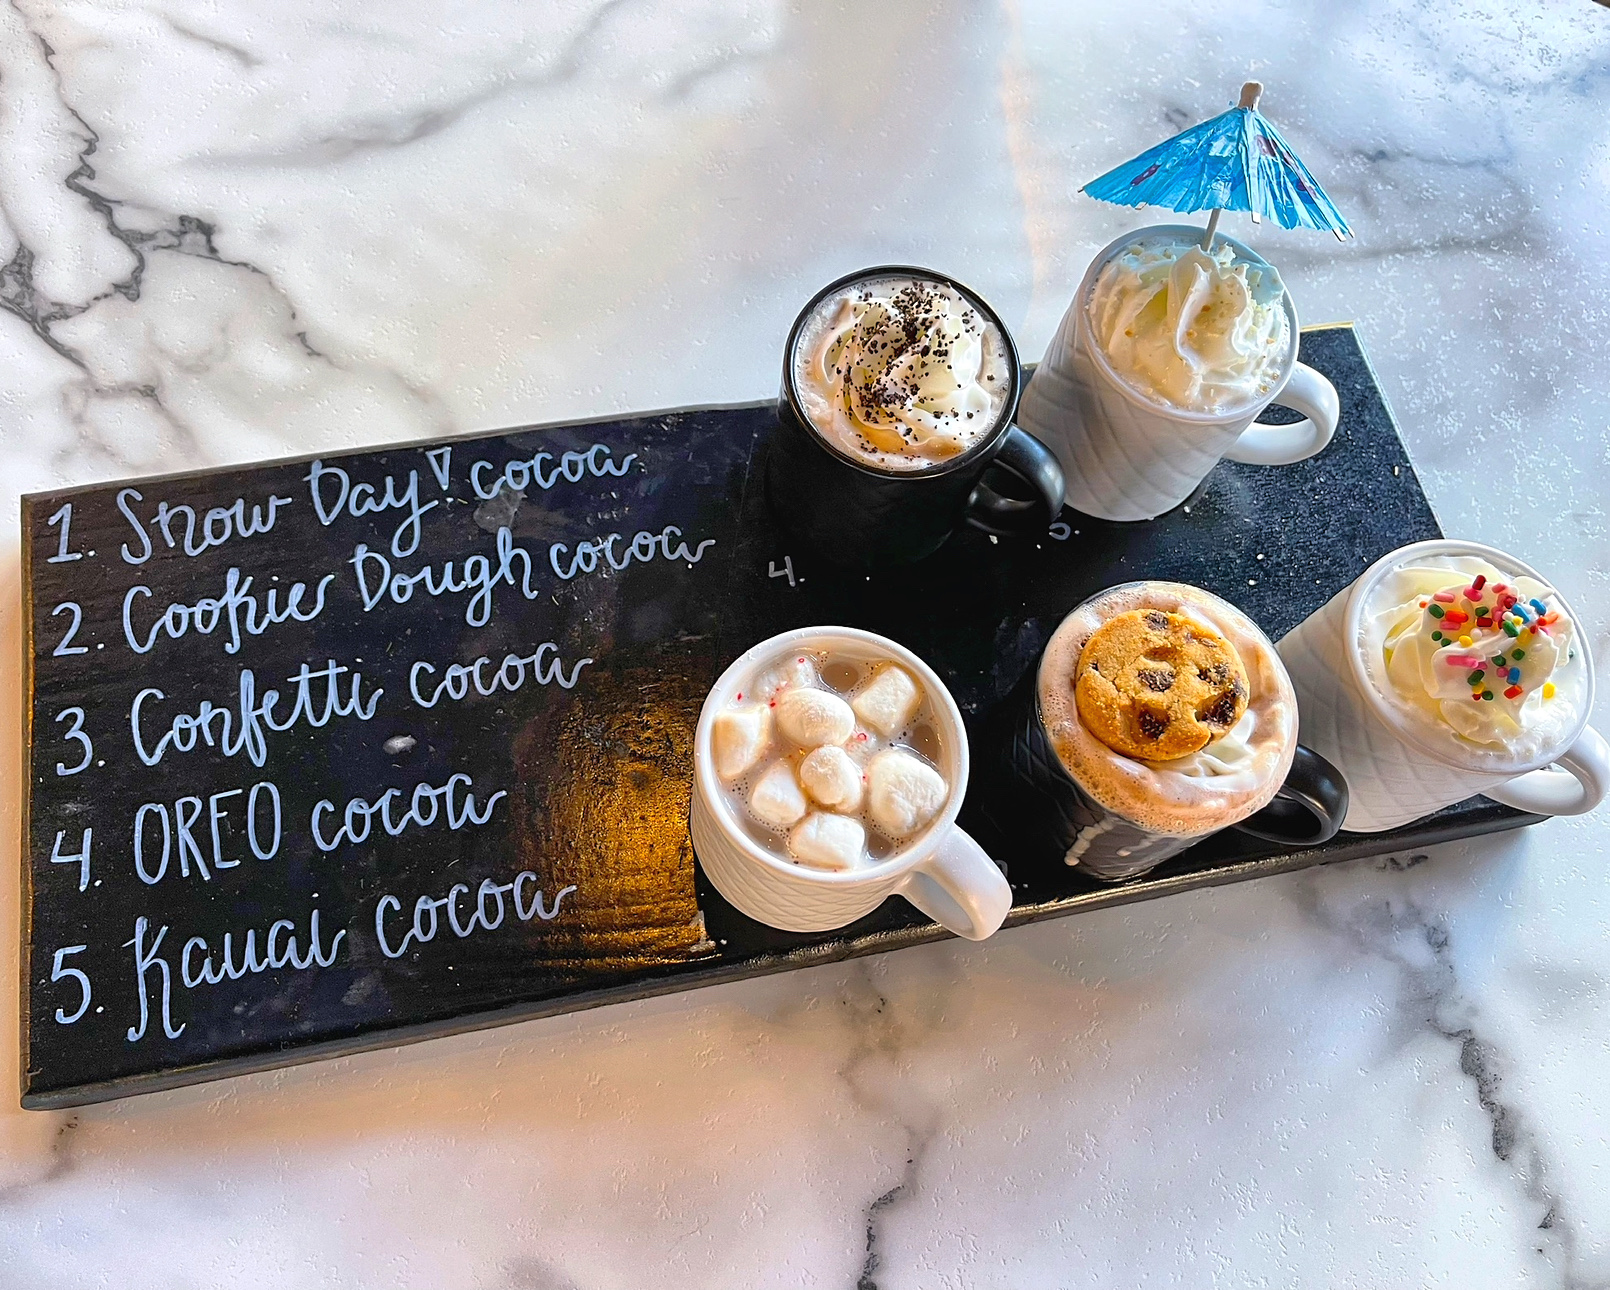 1. Snow Day! cocoa
2. Cookie Dough cocoa
3. Confetti cocoa
4. OREO cocoa
5. Kauai cocoa
4.
5.